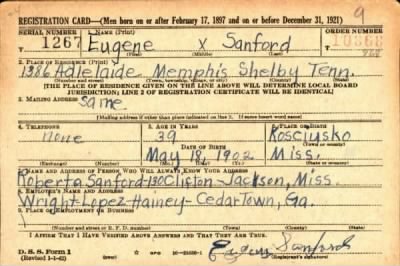 9
REGISTRATION CARD—(Men born on or after February 17, 1897 and on or before December 31, 1921)
SERIAL NUMBER 1. NAME (Print) ORDER NUMBER
1267 Eugene X Sanford 10868
2. PLACE OF RESIDENCE (Print)
1386 Adelaide Memphis Shelby Tenn.
[THE PLACE OF RESIDENCE GIVEN ON THE LINE ABOVE WILL DETERMINE LOCAL BOARD
JURISDICTION; LINE 2 OF REGISTRATION CERTIFICATE WILL BE IDENTICAL]
3. MAILING ADDRESS
Same
[Mailing address if other than place indicated on line 2. If same insert word same]
4. TELEPHONE 5. AGE IN YEARS 6. PLACE OF BIRTH
None 39 Kosciusko
DATE OF BIRTH (Town or county)
May 18, 1902 Miss.
(Exchange) (Number) (Mo.) (Day) (Yr.) (State or country)
7. NAME AND ADDRESS OF PERSON WHO WILL ALWAYS KNOW YOUR ADDRESS
Roberta Sanford-130 Clifton-Jackson, Miss.
8. EMPLOYER'S NAME AND ADDRESS
Wright-Lopez-Hainey-CedarTown, Ga.
9. PLACE OF EMPLOYMENT OR BUSINESS
(Number and street or R. F. D. number) (Town) (County) (State)
I AFFIRM THAT I HAVE VERIFIED ABOVE ANSWERS AND THAT THEY ARE TRUE.
D. S. S. Form 1
(Revised 1-1-42) (over) Eugene Sanford
(Registrant's signature)